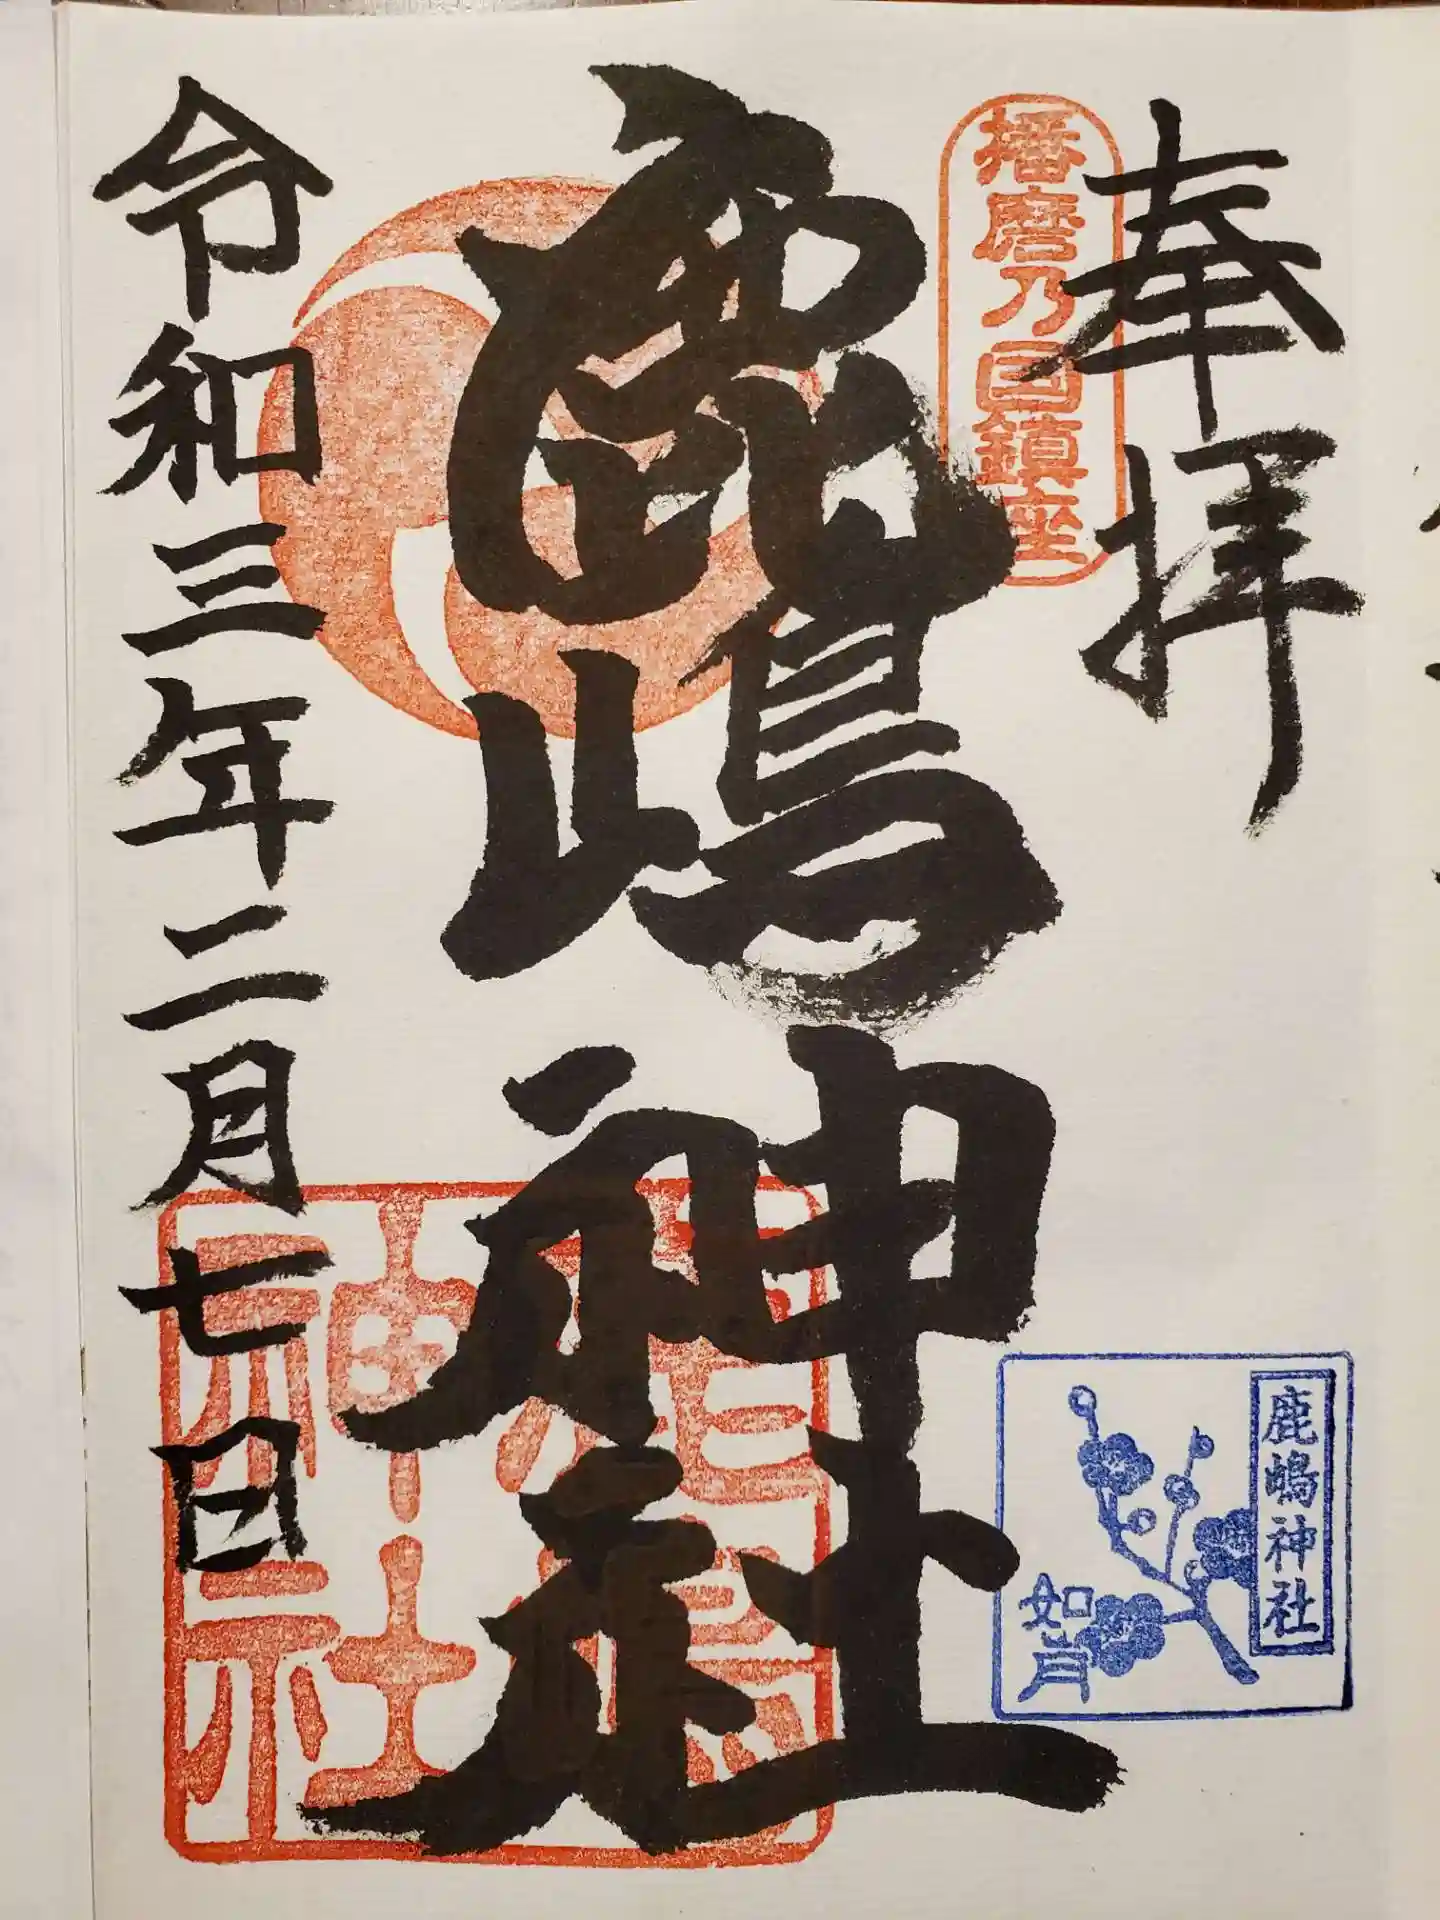 奉拝
播磨乃国鎮座
鹿嶋神社
鹿嶋神社
如月
鹿嶋神社
令和三年二月七日